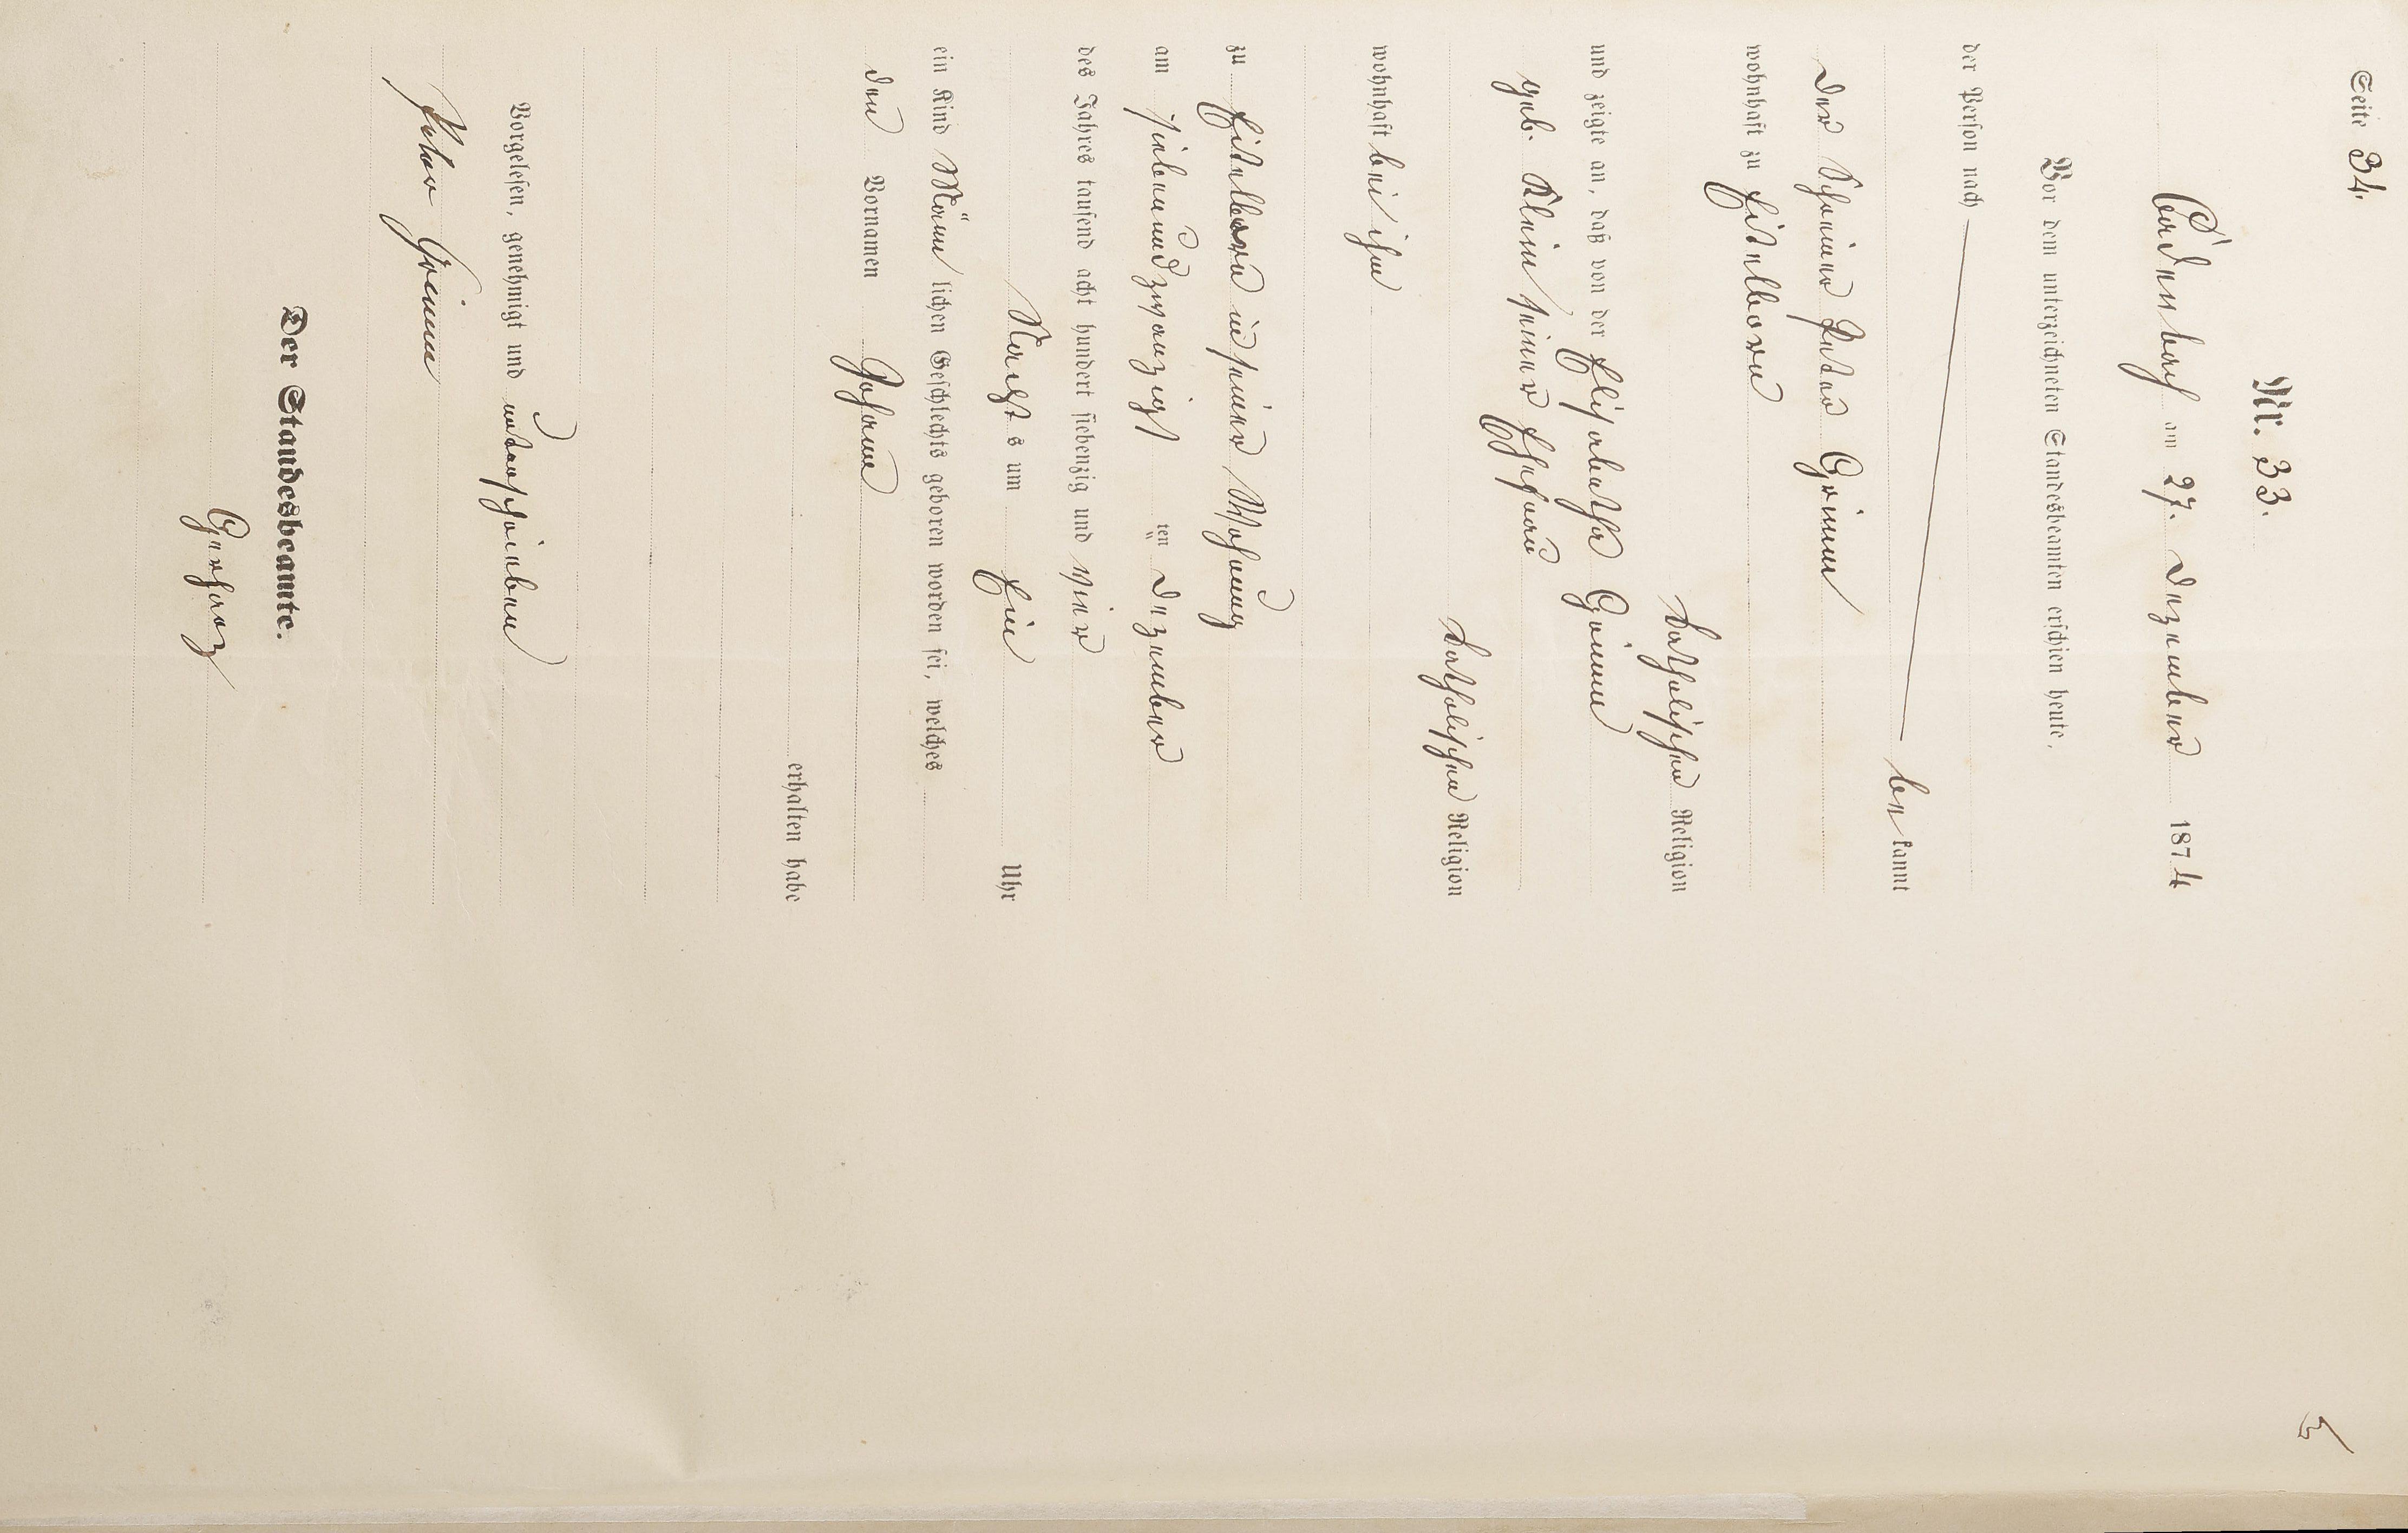 Seite 34.
Nr. 33.
Cadenbach am 27. Dezember 1874
Vor dem unterzeichneten Standesbeamten erschien heute,
der Person nach
bekannt
der Schreiner Peter Grimm
wohnhaft zu Eitelborn
katholischer Religion
und zeigte an, daß von der Elisabetha Grimm
geb. Klein seiner Ehefrau
katholischen Religion
wohnhaft bei ihm
zu Eitelborn in seiner Wohnung
am siebenundzwanzigsten Dezember
des Jahres tausend acht hundert siebenzig und vier
Nachts um Ein Uhr
ein Kind Männlichen Geschlechts geboren worden sei, welches
den Vornamen Johann
erhalten habe
Vorgelesen, genehmigt und unterschrieben
Peter Grimm
Der Standesbeamte.
Gerharz